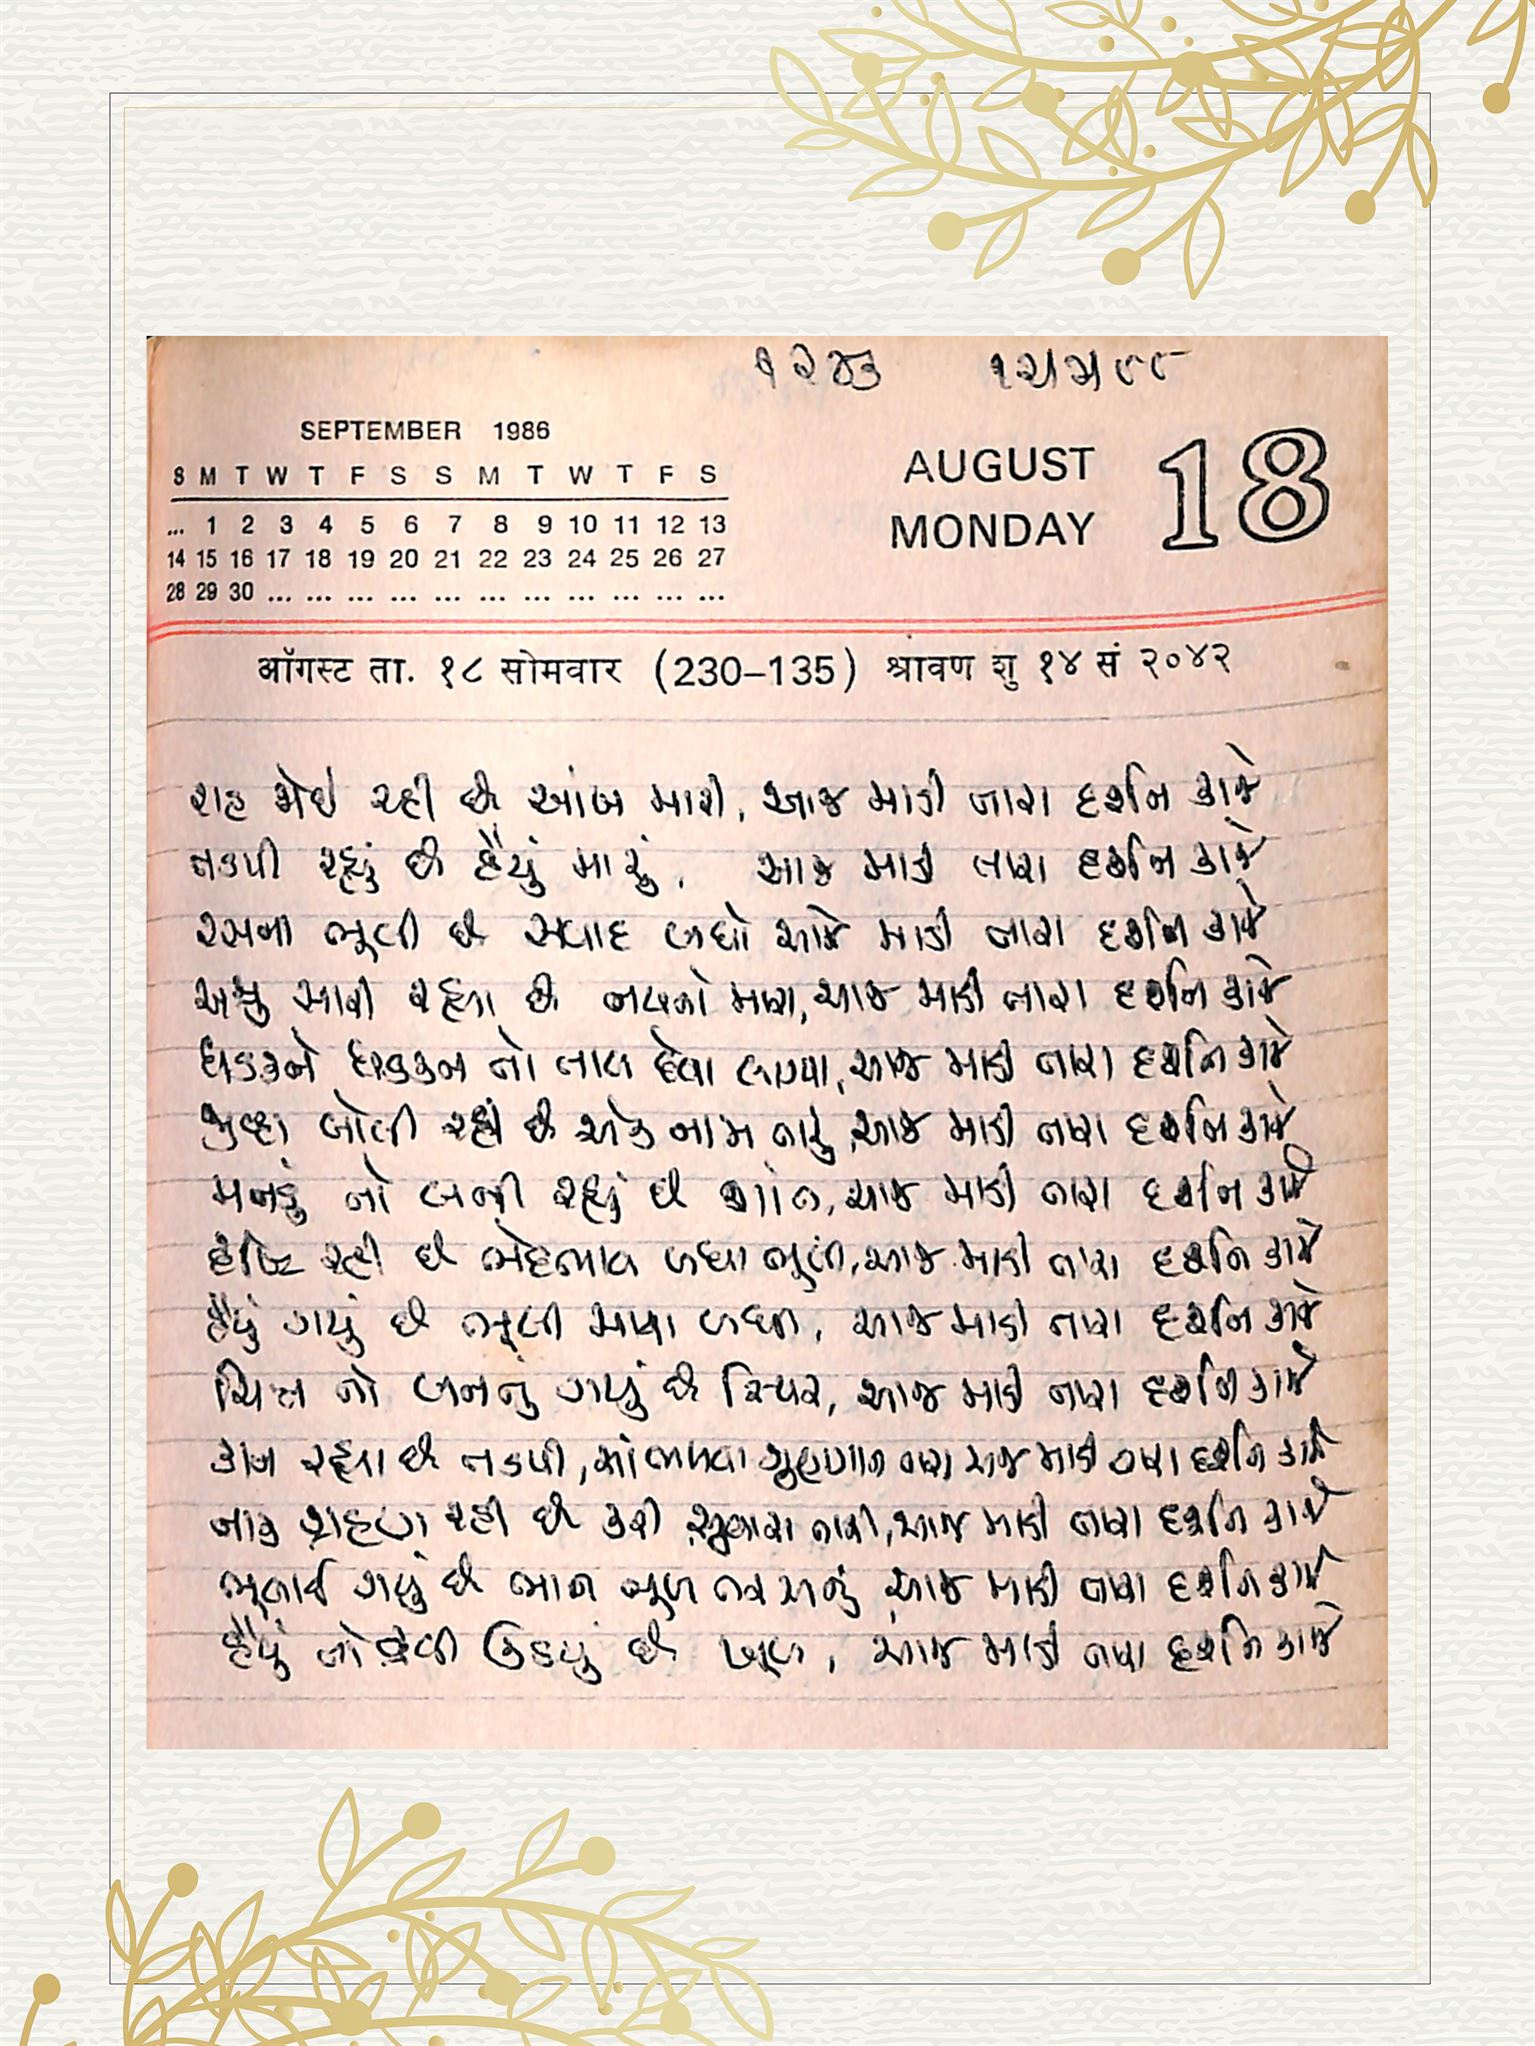 SEPTEMBER 1986
S M T W T F S S M T W T F S
... 1 2 3 4 5 6 7 8 9 10 11 12 13
14 15 16 17 18 19 20 21 22 23 24 25 26 27
28 29 30 ... ... ... ... ... ... ... ... ... ... ...
AUGUST
MONDAY
18
ऑगस्ट ता. १८ सोमवार (230–135) श्रावण शु १४ सं २०४२
રાહ જોઈ રહી છે આંખ મારી, આજ માડી તારા દર્શન કાજે
તડપી રહ્યું છે હૈયું મારું, આજ માડી તારા દર્શન કાજે
રસના ભૂલી છે સ્વાદ બધો આજે માડી તારા દર્શન કાજે
અશ્રુ સારી રહ્યા છે નયનો મારા, આજ માડી તારા દર્શન કાજે
ધડકને ધડકન તો તાલ દેવા લાગ્યા, આજ માડી તારા દર્શન કાજે
જીવ્હા બોલી રહી છે એક નામ તારું, આજ માડી તારા દર્શન કાજે
મનડું તો બની રહ્યું છે શાંત, આજ માડી તારા દર્શન કાજે
દૃષ્ટિ રહી છે ભેદભાવ બધા ભૂલી, આજ માડી તારા દર્શન કાજે
હૈયું ગયું છે ભૂલી માયા બધી, આજ માડી તારા દર્શન કાજે
ચિત્ત તો બનતું ગયું છે સ્થિર, આજ માડી તારા દર્શન કાજે
કાન રહ્યા છે તડપી, સાંભળવા ગુણગાન તારા આજ માડી તારા દર્શન કાજે
નાક રહી છે કરી સુવાસ તારી, આજ માડી તારા દર્શન કાજે
ભૂલાઈ ગયું છે ભાન આજ માડી તારા દર્શન કાજે
હૈયું તો ઉઠયું છે ખૂબ, આજ માડી તારા દર્શન કાજે